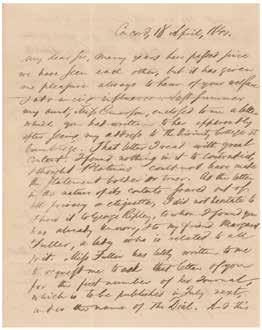 Concord, 18 April, 1840.
My dear Sir, Many years have passed since
we have seen each other, but it has given
me pleasure always to hear of your welfare
& advancing influence. Last summer,
my aunt, Miss Emerson, enclosed to me a letter
which you had written to her apparently
after seeing my address to the Divinity College at
Cambridge. That letter I read with great
content. I found nothing in it to contradict,
I thought Plotinus could not have made
the statement bolder or truer. As the letter
by the nature of its contents
all privacy or etiquette, I did not hesitate to
show it to George Ripley, to whom I found you
was already known, & to my friend Margaret
Fuller, a lady who is related to all
wit. Miss Fuller has lately written to me
to request me to ask that letter of you
for the first number of her Journal,
which is to be published in July next,
under the name of The Dial. And this